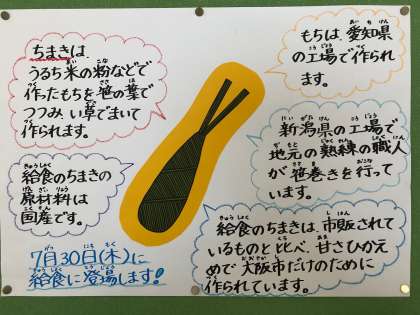 ちまきは、
うるち米の粉などで
作ったもちを笹の葉で
つつみ、い草でまいて
作られます。
もちは、愛知県
の工場で作られ
ます。
新潟県の工場で
地元の熟練の職人
が笹巻きを行って
います。
給食のちまきの
原材料は
国産です。
給食のちまきは、市販されて
いるものと比べ、甘さひかえ
めで大阪市だけのために
作られています。
7月30日(木)に
給食に登場します!